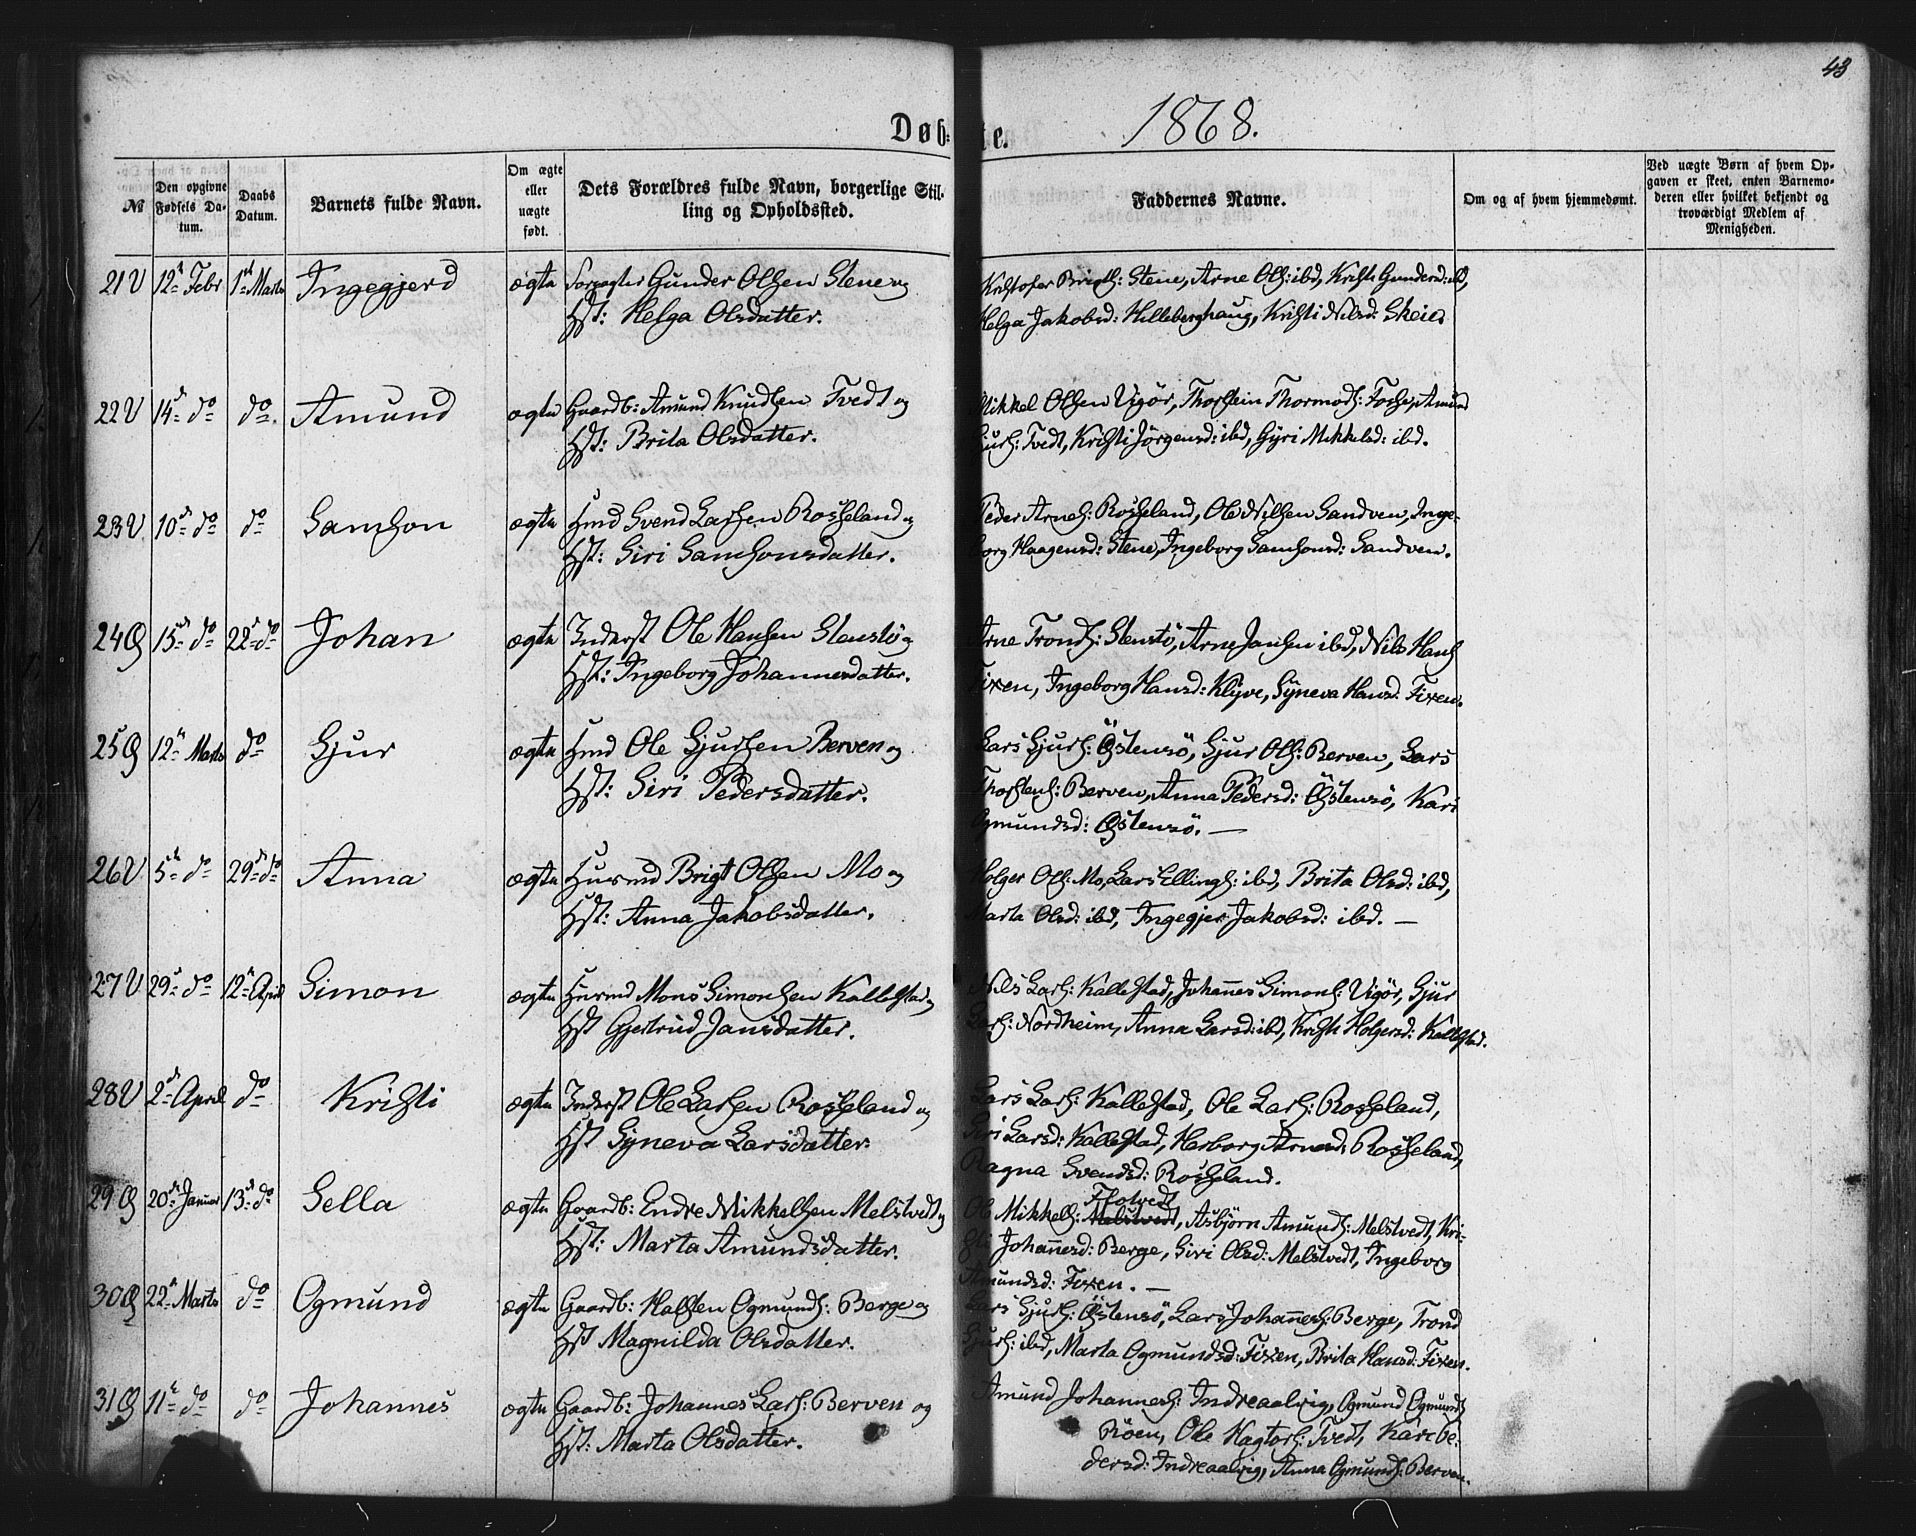 43
Døb-te. 1868.
№
Den opgivne Fødsels Datum.
Daabs Datum.
Barnets fulde Navn.
Om ægte eller uægte født.
Dets Forældres fulde Navn, borgerlige Stilling og Opholdssted.
Faddernes Navne.
Om og af hvem hjemmedøbt.
Ved uægte Børn af hvem Opgaven er skeet, enten Barnemoderen eller hvilket bekjendt og troværdigt Medlem af Menigheden.
21 V 12te Febr 1ste Marts Ingegjerd ægte Gunder Olsen Stene og
Hst: Helga Olsdatter.
Kristofer Stene, Arne Ols: ibd, Kristi Gundersd: ibd,
Helga Jakobsd: Hilleberghaug, Kristi Nilsd: Skeie.
22 V 14de do do. Amund ægte Gaardb: Amund Knudsen Tvedt og
Hst: Brita Olsdatter.
Mikkel Olsen Vigör, Thorstein Thormods: Fosse, Amund
Gjurs: Tvedt, Kristi Jörgensd: ibd, Gyri Mikkelsd: ibd.
23 V 10de do do Samson ægte Hmd Svend Larsen Rosseland og
Hst: Siri Samsonsdatter.
Peder Arnes: Rosseland, Ole Nilsen Sandven, Inge-
borg Haagensd: Stene, Ingeborg Samsonsd: Sandven.
24 Ø 15de do 22de do Johan ægte Inderst Ole Hansen Stenstö og
Hst: Ingeborg Johannesdatter.
Arne Tronds: Stenstö, Arne Jansen ibd, Nils Hans
Fixen, Ingeborg Hansd: Klyve, Syneva Hansd: Fixen.
25 Ø 12te Marts do Gjur ægte Hmd Ole Gjursen Berven og
Hst: Siri Pedersdatter.
Lars Gjurs: Østensö, Gjur Ols: Berven, Lars
Thorstens: Berven, Anna Pedersd: Østensö, Kari
Ogmundsd: Østensö. —
26 V 5te do 29de do Anna ægte Husmd Brigt Olsen Mo og
Hst: Anna Jakobsdatter.
Holger Ols: Mo, Lars Ellings: ibd, Brita Olsd: ibd,
Marta Olsd: ibd, Ingegjer Jakobsd: ibd. —
27 V 29de do 12te April Simon ægte Husmd Mons Simonsen Kallestad og
Hst Gjertrud Jansdatter.
Nils Lars: Kallestad, Johannes Simons: Vigör, Gjur
Lars: Nordheim, Anna Larsd: ibd, Kristi Holgersd: Kallestad.
28 V 2den April do Kristi ægte Inderst Ole Larsen Rosseland og
Hst Syneva Larsdatter.
Lars Lars: Kallestad, Ole Lars: Rosseland,
Siri Larsd: Kallestad, Herborg Arnesd: Rosseland,
Ragna Svendsd: Rosseland.
29 Ø 20de Januar 13de do Sella ægte Gaardb: Endre Mikkelsen Melstvedt og
Hst: Marta Amundsdatter.
Flotvedt
Ole Mikkels: Melstvedt, Asbjörn Amunds: Melstvedt, Kri-
sti Johannesd: Berge, Siri Olsd: Melstvedt, Ingeborg
Amundsd: Fixen. —
30 Ø 22de Marts do Ogmund ægte Gaardb: Halsten Ogmunds: Berge og
Hst Magnilda Olsdatter.
Lars Gjurs: Østensö, Lars Johannes: Berge, Trond
Gjurs: ibd, Marta Ogmundsd: Fixen, Brita Hansd: Fixen.
31 Ø 11te do do Johannes ægte Gaardb: Johannes Lars: Berven og
Hst: Marta Olsdatter.
Amund Johannes: Indreaalvig, Ogmund Ogmunds
Röen, Ole Hagtors: Tvedt, Kari Pe-
dersd: Indreaalvig, Anna Ogmunds: Berven.